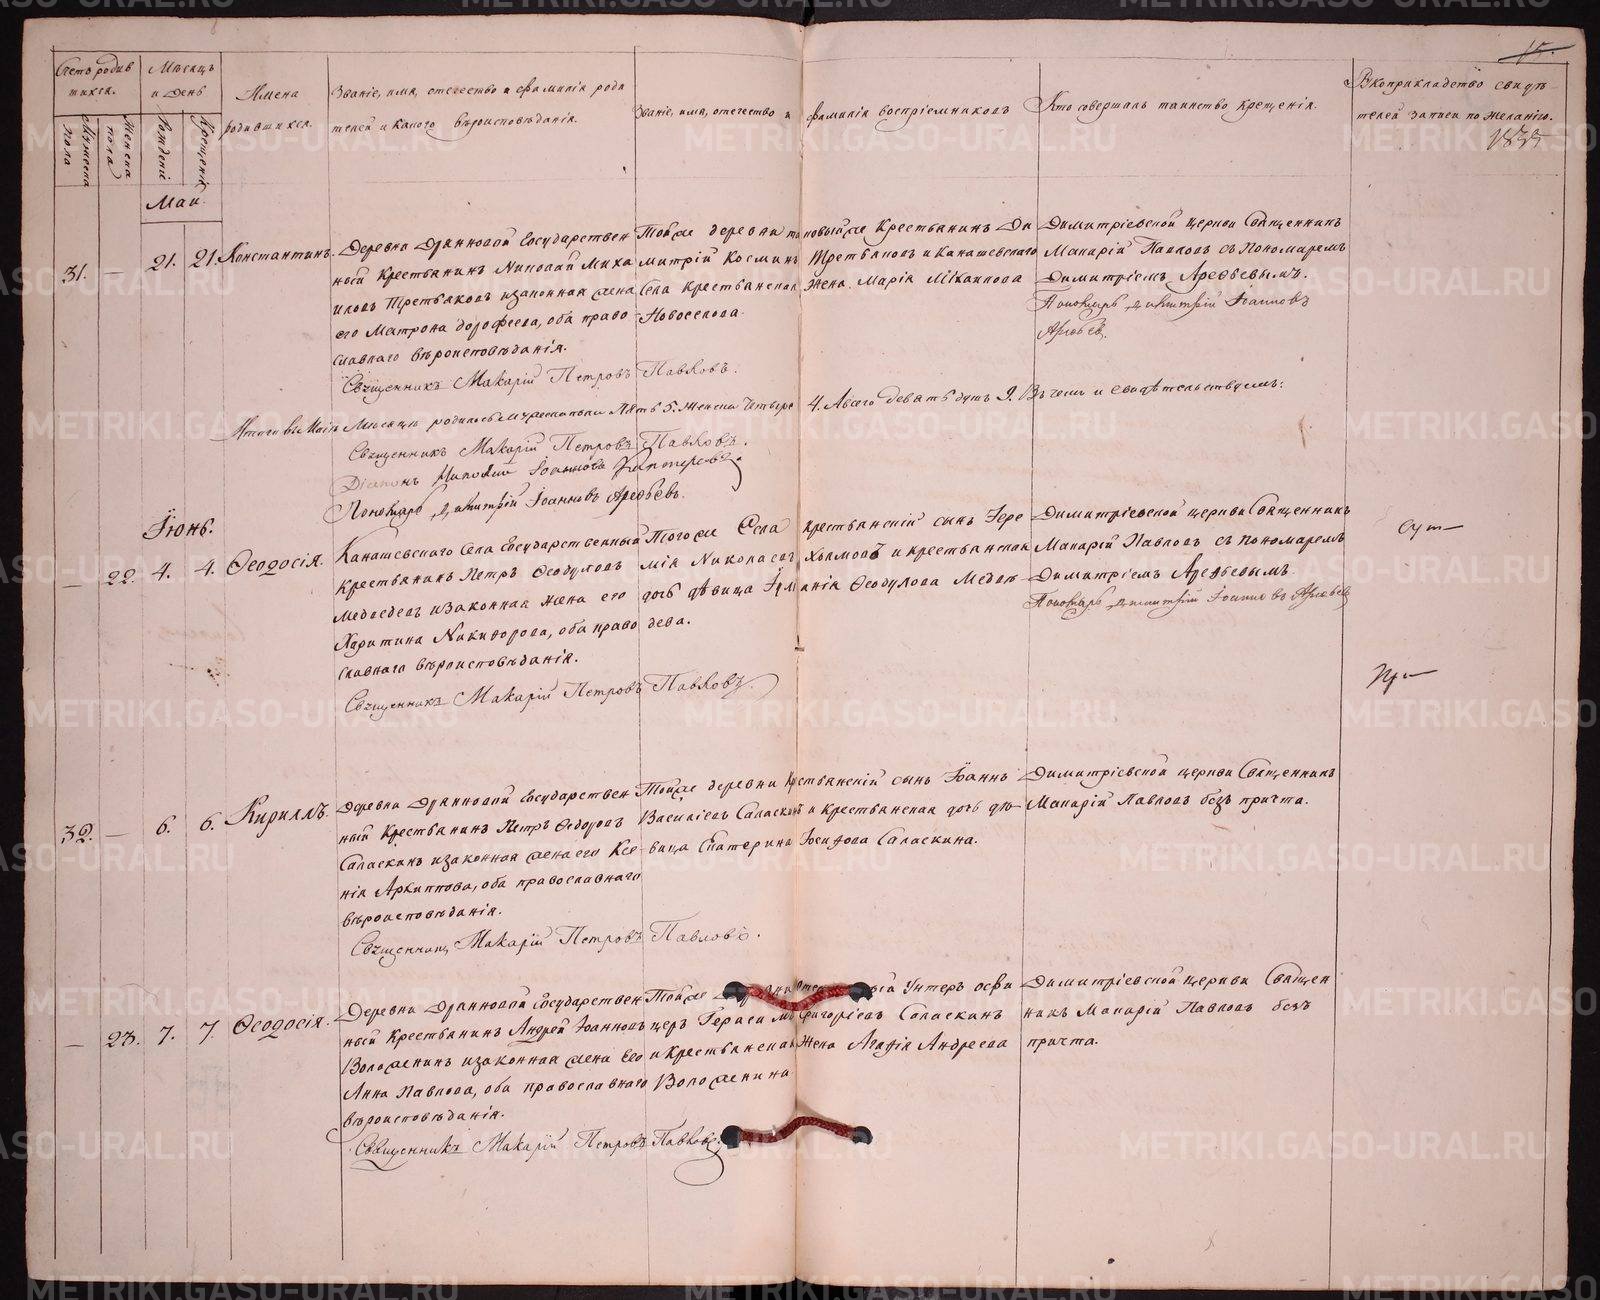 15.
Счетъ родив
шихся.
Мѣсяцъ
и день
Имена
родившихся.
Званіе, имя, отечество и фамилія роди
телей и какого вѣроисповѣданія.
Званіе, имя, отечество и фамилія воспріемниковъ
Кто совершалъ таинство крещенія.
Рукоприкладство свидѣ-
телей записи по желанію.
1855
Мужеска
пола
Женска
пола
Рожденіе
Крещеніе
Май.
31. — 21. 21. Константинъ.
Деревни Дрянновой Государствен
ный Крестьянинъ Николай Миха
иловъ Третьяковъ и законная жена
его Матрона Дорофеева, оба право
славнаго вѣроисповѣданія.
Священникъ Макарій Петровъ Павловъ.
Тойже деревни таковыйже Крестьянинъ Ди
митрій Косминъ Третьяковъ и Канашевскаго
Села Крестьянская Жена Марія Михайлова
Новоселова.
Димитріевской церкви Священникъ
Макарій Павловъ съ Пономаремъ
Димитріемъ Арефьевымъ.
Пономарь Димитрій Іоанновъ
Арефьевъ.
Итого въ Маіѣ Мѣсяцѣ родилось мужеска пола Пять 5. Женска Четыре 4. А всего девять душъ 9. Въ чемъ и свидѣтельствуемъ:
Священникъ Макарій Петровъ Павловъ.
Діаконъ Николай Іоанновъ
Пономарь Димитрій Іоанновъ Арефьевъ.
Іюнь.
— 22. 4. 4. Ѳеодосія.
Канашевскаго Села Государственный
Крестьянинъ Петръ Ѳеодуловъ
Медведевъ и законная жена его
Харитина Никифорова, оба право
славнаго вѣроисповѣданія.
Священникъ Макарій Петровъ Павловъ.
Тогоже Села крестьянскій сынъ Іере
мія Николаевъ Холмовъ и крестьянская
дочь дѣвица Іуліанія Ѳеодулова Медвѣ-
дева.
Димитріевской церкви Священникъ
Макарій Павловъ съ пономаремъ
Димитріемъ Арефьевымъ.
Пономарь Димитрій Іоанновъ Арефьевъ
32. — 6. 6. Кириллъ.
Деревни Дрянновой Государствен
ный Крестьянинъ Петръ Ѳедоровъ
Саласкинъ и законная жена его Ксе-
нія Архиппова, оба православнаго
вѣроисповѣданія.
Священникъ Макарій Петровъ Павловъ.
Тойже деревни Крестьянскій сынъ Іоаннъ
Василіевъ Саласкинъ и крестьянская дочь дѣ-
вица Екатерина Іосифова Саласкина.
Димитріевской церкви Священникъ
Макарій Павловъ безъ причта.
— 23. 7. 7. Ѳеодосія.
Деревни Дрянновой Государствен
ный Крестьянинъ Андрей Іоанновъ
Воложенинъ и законная жена его
Анна Павлова, оба православнаго
вѣроисповѣданія.
Священникъ Макарій Петровъ Павловъ.
Тойже Унтеръ офи
церъ Герасимъ Григорьевъ Саласкинъ
и Крестьянская Жена Агафія Андреева
Воложенина
Димитріевской церкви Священ
никъ Макарій Павловъ безъ
причта.
METRIKI.GASO-URAL.RU